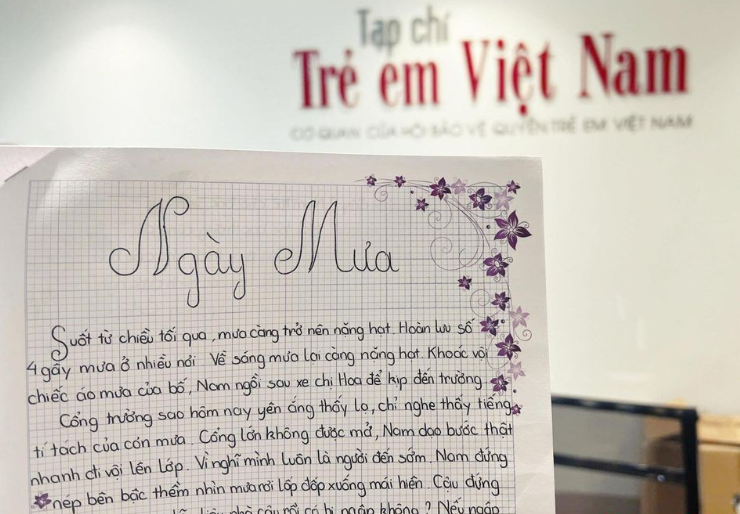 Tạp chí
Trẻ em Việt Nam
CƠ QUAN CỦA HỘI BẢO VỆ QUYỀN TRẺ EM VIỆT NAM
Ngày Mưa
Suốt từ chiều tối qua, mưa càng trở nên nặng hạt. Hoàn lưu số
4 gây mưa ở nhiều nơi. Về sáng mưa lại càng nặng hạt. Khoác vội
chiếc áo mưa của bố, Nam ngồi sau xe chị Hoa để kịp đến trường.
Cổng trường sao hôm nay yên ắng thấy lạ, chỉ nghe thấy tiếng
tí tách của cơn mưa. Cổng lớn không được mở, Nam dạo bước thật
nhanh đi vội lên lớp. Vì nghĩ mình luôn là người đến sớm. Nam đứng
nép bên bậc thềm nhìn mưa rơi lốp đốp xuống mái hiên. Cậu đứng
nhà cậu rồi có bị mận không? Nếu ngập